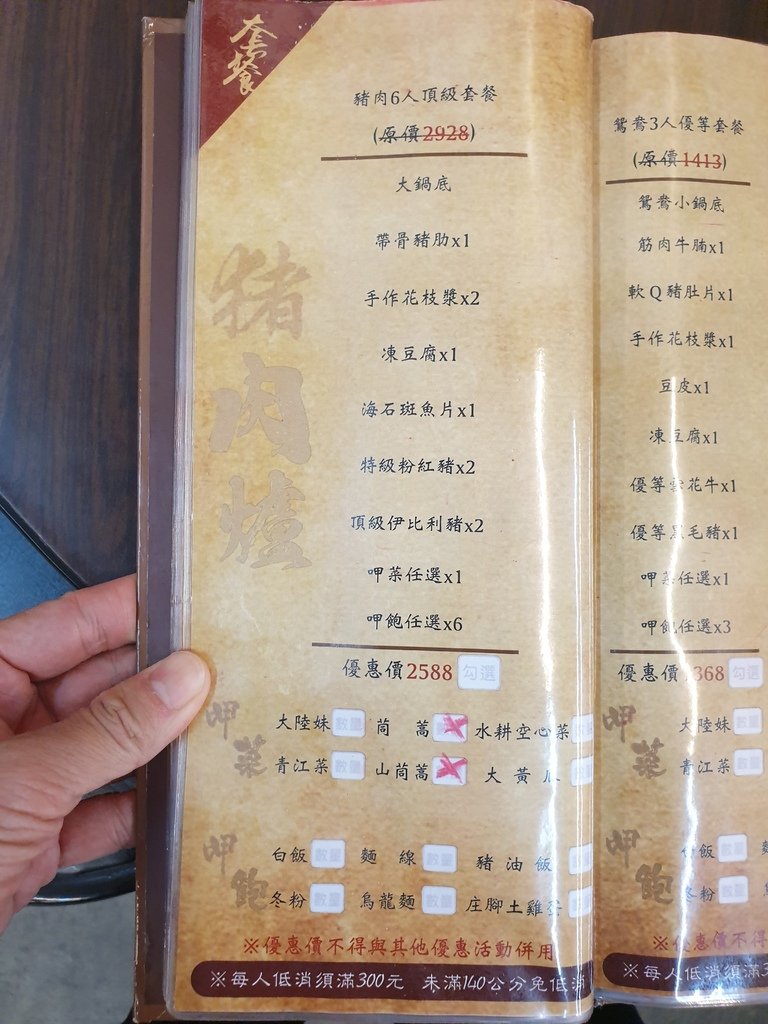 套餐
豬肉6人頂級套餐
(原價2928)
大鍋底
帶骨豬肋x1
手作花枝漿x2
凍豆腐x1
海石斑魚片x1
特級粉紅豬x2
頂級伊比利豬x2
呷菜任選x1
呷飽任選x6
優惠價2588 勾選
豬肉爐
呷菜
大陸妹 數量 茼蒿 水耕空心菜
青江菜 數量 山茼蒿 大黃瓜
呷飽
白飯 數量 麵線 數量 豬油飯
冬粉 數量 烏龍麵 數量 庄腳土雞蛋
※優惠價不得與其他優惠活動併用
※每人低消須滿300元 未滿140公分免低消
鴛鴦3人優等套餐
(原價1413)
鴛鴦小鍋底
筋肉牛腩x1
軟Q豬肚片x1
手作花枝漿x1
豆皮x1
凍豆腐x1
優等雪花牛x1
優等黑毛豬x1
呷菜任選x1
呷飽任選x3
優惠價1368 勾選
呷菜
大陸妹 數量
青江菜 數量
呷飽
白飯 數量
冬粉 數量
※優惠價不得
※每人低消須滿3